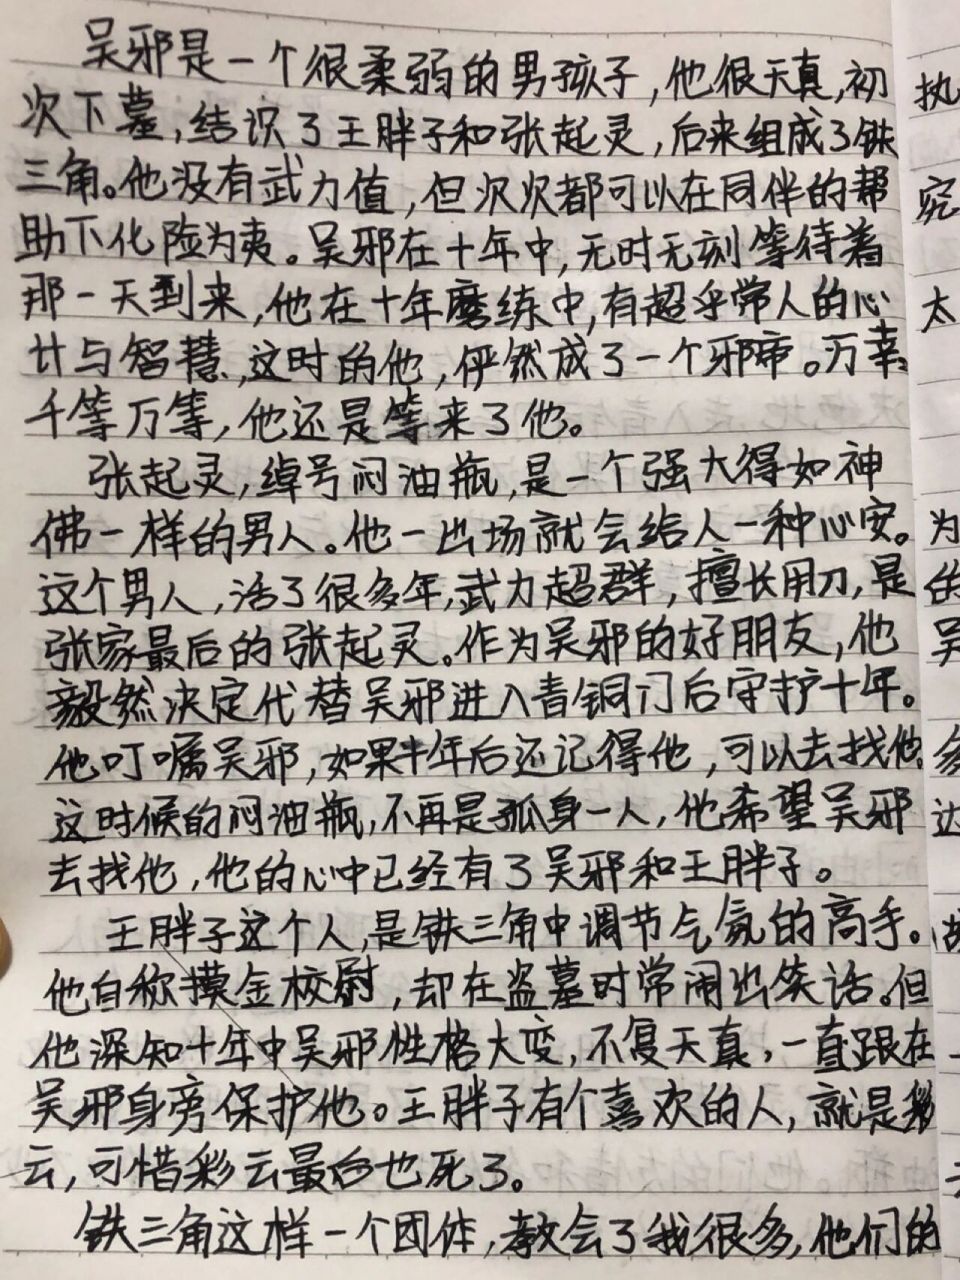 吴邪是一个很柔弱的男孩子，他很天真，初
次下墓，结识了王胖子和张起灵，后来组成了铁
三角。他没有武力值，但次次都可以在同伴的帮
助下化险为夷。吴邪在十年中，无时无刻等待着
那一天到来，他在十年磨练中，有超乎常人的心
计与智慧，这时的他，俨然成了一个邪帝。万幸，
千等万等，他还是等来了他。
张起灵，绰号闷油瓶，是一个强大得如神
佛一样的男人。他一出场就会给人一种心安。
这个男人，活了很多年，武力超群，擅长用刀，是
张家最后的张起灵。作为吴邪的好朋友，他
毅然决定代替吴邪进入青铜门后守护十年。
他叮嘱吴邪，如果十年后还记得他，可以去找他。
这时候的闷油瓶，不再是孤身一人，他希望吴邪
去找他，他的心中已经有了吴邪和王胖子。
王胖子这个人，是铁三角中调节气氛的高手。
他自称摸金校尉，却在盗墓时常闹出笑话。但
他深知十年中吴邪性格大变，不复天真，一直跟在
吴邪身旁保护他。王胖子有个喜欢的人，就是彩
云，可惜彩云最后也死了。
铁三角这样一个团体，教会了我很多，他们的
执
究
太
为
的
吴
多
达